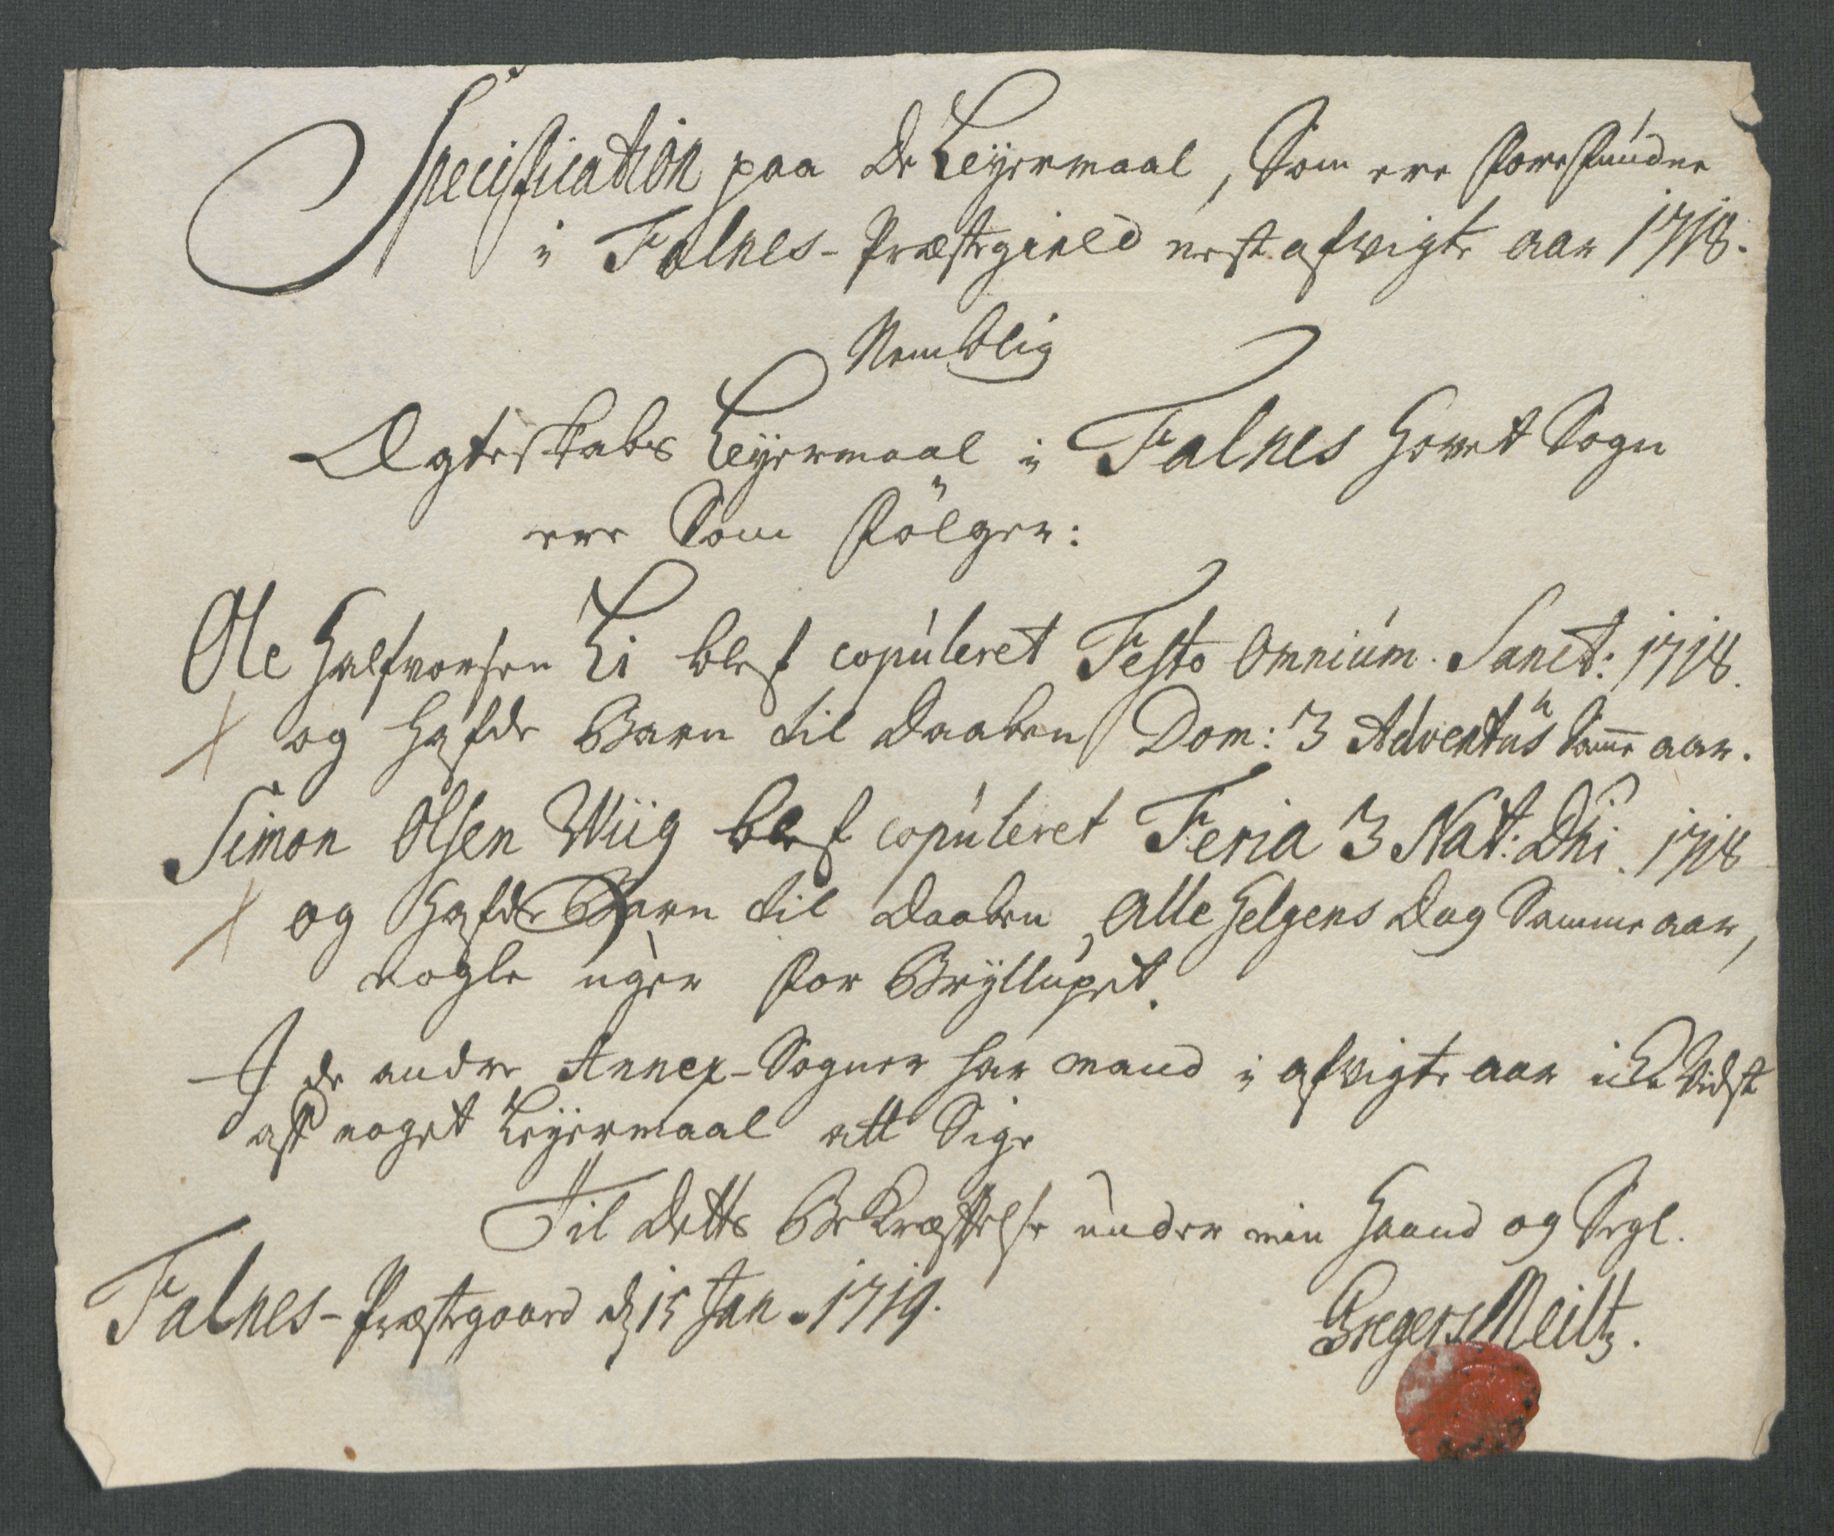 Specification paa de Leyermaal, Som ere forefundne
i Falnes-Præstegield nest afvigte aar 1718.
Nemblig
Ægteskabs Leyermaal i Falnes Hovet Sogn
ere Som fölger:
Ole Halfvorsen Li blef copuleret Festo Omnium Sanct: 1718.
og hafde Barn til Daaben Dom: 3 Adventus samme aar.
Simon Olsen Wiig blef copuleret Feria 3 Nat: Dni. 1718
og hafde Barn til Daaben, Alle Helgens Dag Samme aar,
nogle uger for Bryllupet.
I de andre Annex-Sogner har mand i afvigte aar icke vidst
aff noget Leyermaal att Sige
Til detts Bekræftelse under min Haand og Segl.
Falnes-Præstegaard d 15 Jan. 1719.
Gregers Meiltz.